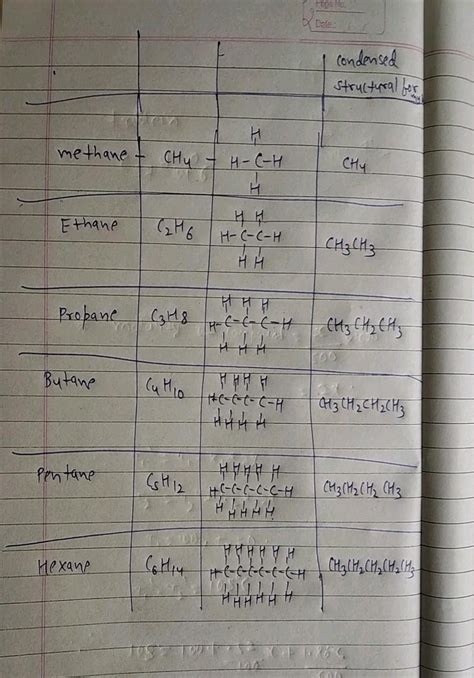 Page No.
Date
condensed
structural for
methane - CH4 - H H-C-H H CH4
Ethane C2H6 H H H-C-C-H H H CH3CH3
Propane C3H8 H H H H-C-C-C-H H H H CH3CH2CH3
Butane C4H10 H H H H H-C-C-C-C-H H H H H CH3CH2CH2CH3
Pentane C5H12 H-C-C-C-C-C-H H H H H H CH3CH2CH2CH3
Hexane C6H14 H H H H H H H-C-C-C-C-C-C-H H H H H H H CH3CH2CH2CH2CH3